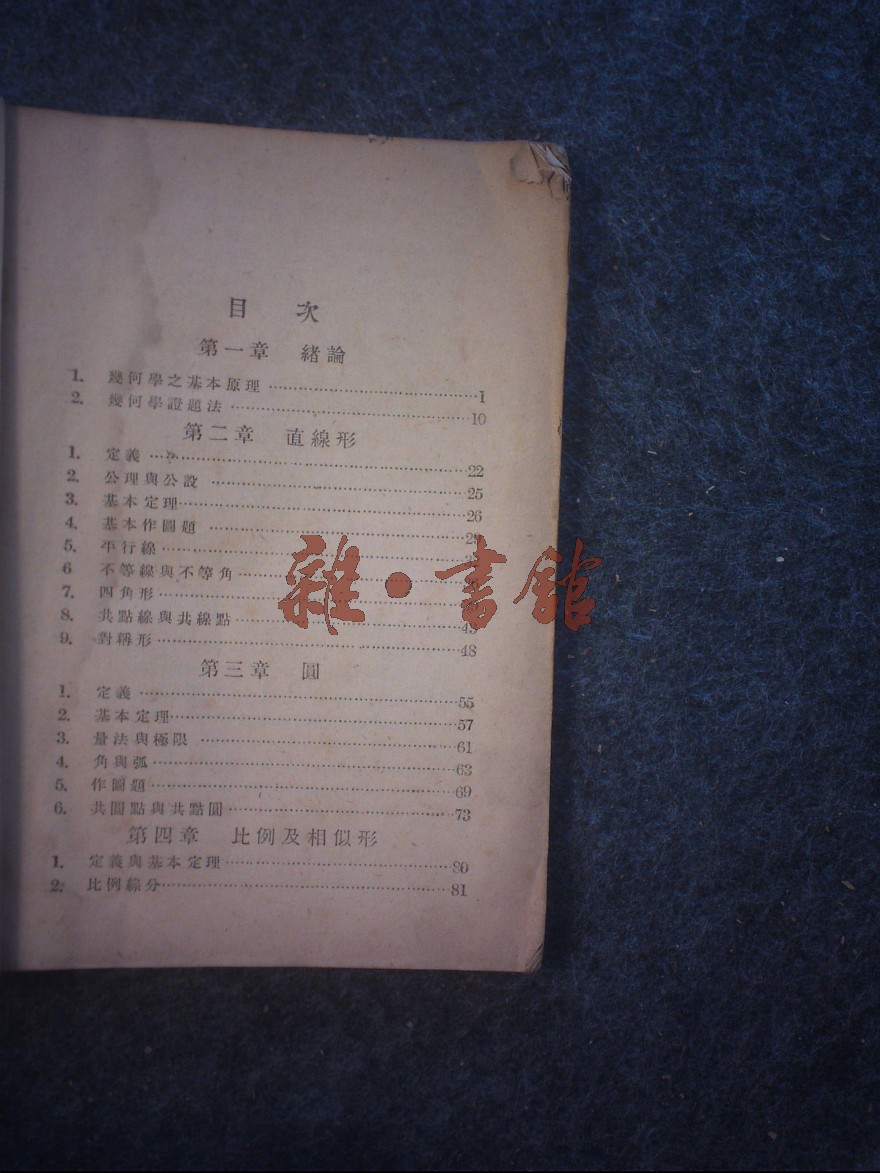 目 次
第一章 緒論
1. 幾何學之基本原理 1
2. 幾何學證題法 10
第二章 直線形
1. 定義 22
2. 公理與公設 25
3. 基本定理 26
4. 基本作圖題
5. 平行線
6 不等線與不等角
7. 四角形
8. 共點線與共線點
9. 對稱形 48
雜·書館
第三章 圓
1. 定義 55
2. 基本定理 57
3. 量法與極限 61
4. 角與弧 63
5. 作圖題 69
6. 共圓點與共點圓 73
第四章 比例及相似形
1. 定義與基本定理 80
2. 比例線分 81